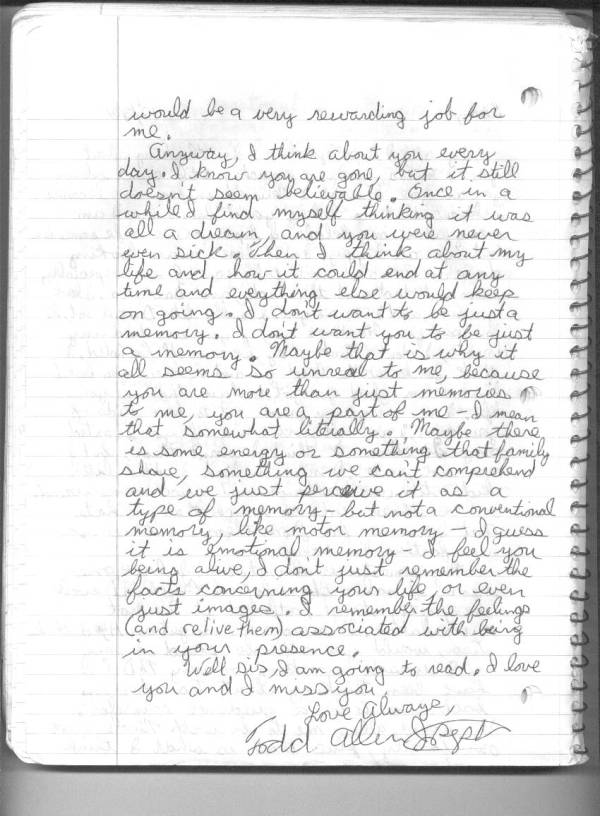 would be a very rewarding job for
me.
Anyway, I think about you every
day. I know you are gone, but it still
doesn't seem believable. Once in a
while I find myself thinking it was
all a dream, and you were never
even sick. Then I think about my
life and how it could end at any
time and everything else would keep
on going. I don't want to be just a
memory. I don't want you to be just
a memory. Maybe that is why it
all seems so unreal to me, because
you are more than just memories
to me, you are a part of me - I mean
that somewhat literally. Maybe there
is some energy or something that family
share, something we can't comprehend
and we just perceive it as a
type of memory - but not a conventional
memory, like motor memory - I guess
it is emotional memory - I feel you
being alive, I don't just remember the
facts concerning your life, or even
just images. I remember the feelings
(and relive them) associated with being
in your presence.
Well sis, I am going to read. I love
you and I miss you,
Love Always,
Todd Allen